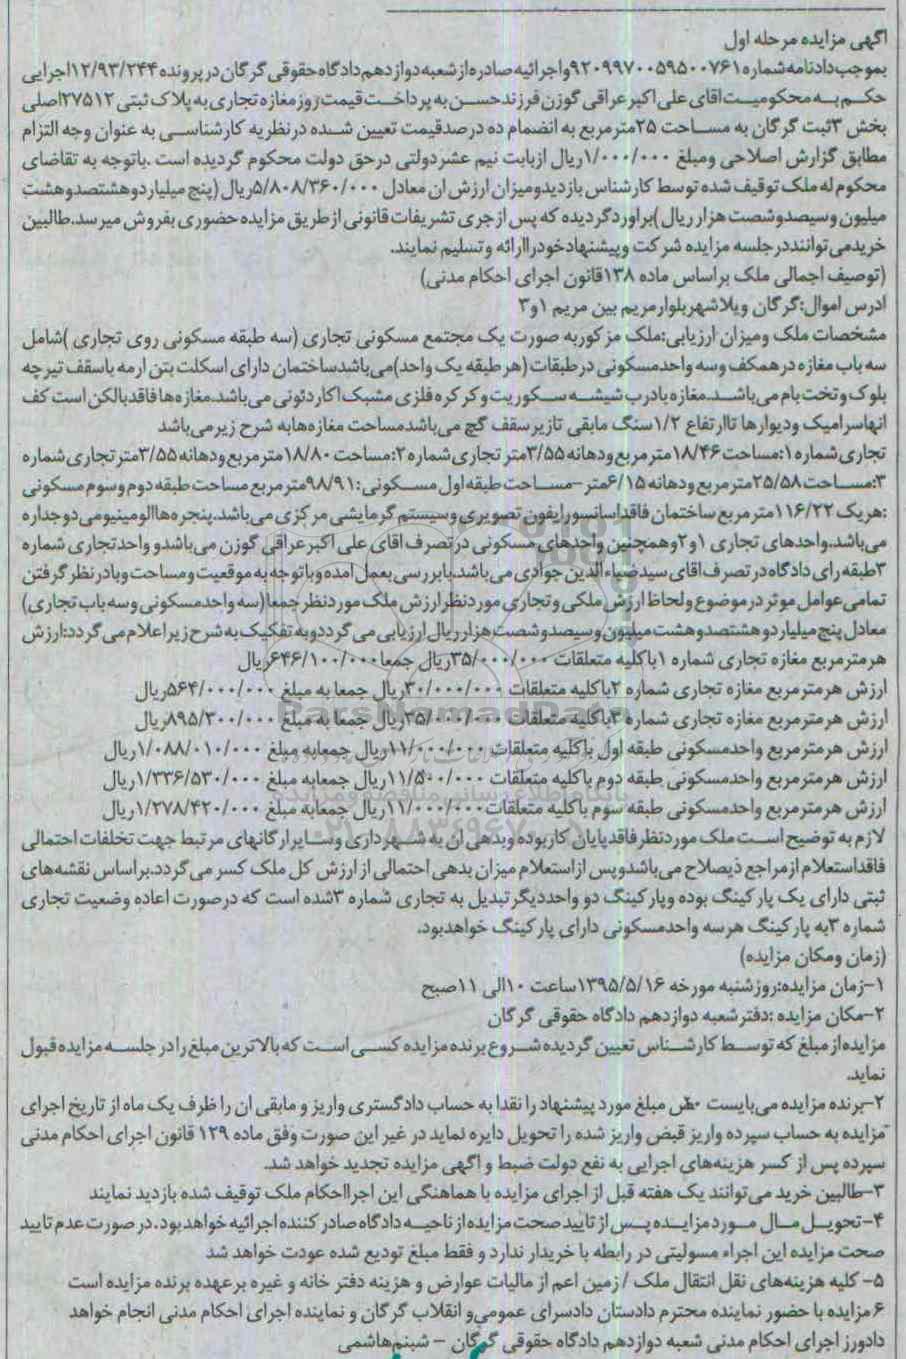 آگهی مزایده مرحله اول
بموجب دادنامه شماره ۹۲۰۹۹۷۰۰۵۹۵۰۰۷۶۱ واجرائیه صادره از شعبه دوازدهم دادگاه حقوقی گرگان در پرونده ۱۲/۹۳/۲۴۴ اجرایی
حکم به محکومیت اقای علی اکبر عراقی گوزن فرزند حسن به پرداخت قیمت روز مغازه تجاری به پلاک ثبتی ۲۷۵۱۲اصلی
بخش ۳ثبت گرگان به مساحت ۲۵مترمربع به انضمام ده درصدقیمت تعیین شده درنظریه کارشناسی به عنوان وجه التزام
مطابق گزارش اصلاحی ومبلغ ۱/۰۰۰/۰۰۰ریال ازبابت نیم عشردولتی درحق دولت محکوم گردیده است .باتوجه به تقاضای
محکوم له ملک توقیف شده توسط کارشناس بازدیدومیزان ارزش ان معادل ۵/۸۰۸/۳۶۰/۰۰۰ریال (پنج میلیاردوهشتصدوهشت
میلیون وسیصدوشصت هزار ریال )براوردگردیده که پس ازجری تشریفات قانونی ازطریق مزایده حضوری بفروش میرسد.طالبین
خریدمی تواننددرجلسه مزایده شرکت وپیشنهادخودراارائه وتسلیم نمایند.
(توصیف اجمالی ملک براساس ماده ۱۳۸قانون اجرای احکام مدنی)
ادرس اموال:گرگان ویلاشهربلوارمریم بین مریم ۱و۳
مشخصات ملک ومیزان ارزیابی:ملک مزکوربه صورت یک مجتمع مسکونی تجاری (سه طبقه مسکونی روی تجاری )شامل
سه باب مغازه درهمکف وسه واحدمسکونی درطبقات (هرطبقه یک واحد)می باشدساختمان دارای اسکلت بتن ارمه باسقف تیرچه
بلوک وتخت بام می باشد.مغازه بادرب شیشه سکوریت وکرکره فلزی مشبک اکاردئونی می باشد.مغازه هافاقدبالکن است کف
انهاسرامیک ودیوارها تاارتفاع ۱/۲سنگ مابقی تازیرسقف گچ می باشدمساحت مغازه هابه شرح زیرمی باشد
تجاری شماره ۱:مساحت ۱۸/۴۶مترمربع ودهانه ۳/۵۵متر تجاری شماره ۲:مساحت ۱۸/۸۰مترمربع ودهانه ۳/۵۵مترتجاری شماره
۳:مساحت ۲۵/۵۸مترمربع ودهانه ۶/۱۵متر–مساحت طبقه اول مسکونی:۹۸/۹۱مترمربع مساحت طبقه دوم وسوم مسکونی
:هریک ۱۱۶/۲۲مترمربع ساختمان فاقداسانسورایفون تصویری وسیستم گرمایشی مرکزی می باشد.پنجره هاالومینیومی دوجداره
می باشد.واحدهای تجاری ۱و۲وهمچنین واحدهای مسکونی درتصرف اقای علی اکبرعراقی گوزن می باشدو واحدتجاری شماره
۳طبقه رای دادگاه در تصرف اقای سیدضیاءالدین جوادی می باشد.بابررسی بعمل امده وباتوجه به موقعیت ومساحت وبادرنظرگرفتن
تمامی عوامل موثر درموضوع ولحاظ ارزش ملکی وتجاری موردنظرارزش ملک موردنظرجمعا(سه واحدمسکونی وسه باب تجاری)
معادل پنج میلیاردوهشتصدوهشت میلیون وسیصدوشصت هزارریال ارزیابی می گرددوبه تفکیک به شرح زیراعلام می گردد:ارزش
هرمترمربع مغازه تجاری شماره ۱باکلیه متعلقات ۳۵/۰۰۰/۰۰۰ریال جمعا۶۴۶/۱۰۰/۰۰۰ریال
ارزش هرمترمربع مغازه تجاری شماره ۲باکلیه متعلقات ۳۰/۰۰۰/۰۰۰ریال جمعا به مبلغ ۵۶۴/۰۰۰/۰۰۰ریال
ارزش هرمترمربع مغازه تجاری شماره ۳باکلیه متعلقات ۳۵/۰۰۰/۰۰۰ریال جمعا به مبلغ ۸۹۵/۳۰۰/۰۰۰ریال
ParsNamadData
ارزش هرمترمربع واحدمسکونی طبقه اول باکلیه متعلقات ۱۱/۰۰۰/۰۰۰ریال جمعابه مبلغ ۱/۰۸۸/۰۱۰/۰۰۰ریال
ارزش هرمترمربع واحدمسکونی طبقه دوم باکلیه متعلقات ۱۱/۵۰۰/۰۰۰ریال جمعابه مبلغ ۱/۳۳۶/۵۳۰/۰۰۰ریال
ارزش هرمترمربع واحدمسکونی طبقه سوم باکلیه متعلقات۱۱/۰۰۰/۰۰۰ریال جمعابه مبلغ ۱/۲۷۸/۴۲۰/۰۰۰ریال
لازم به توضیح است ملک موردنظرفاقدپایان کاربوده وبدهی ان به شهرداری وسایرارگانهای مرتبط جهت تخلفات احتمالی
فاقداستعلام ازمراجع ذیصلاح می باشدوپس ازاستعلام میزان بدهی احتمالی از ارزش کل ملک کسر می گردد.براساس نقشه های
ثبتی دارای یک پارکینگ بوده وپارکینگ دو واحددیگرتبدیل به تجاری شماره ۳شده است که درصورت اعاده وضعیت تجاری
شماره ۳به پارکینگ هرسه واحدمسکونی دارای پارکینگ خواهدبود.
(زمان ومکان مزایده)
۱–زمان مزایده:روزشنبه مورخه ۱۳۹۵/۵/۱۶ساعت ۱۰الی ۱۱صبح
۲–مکان مزایده :دفترشعبه دوازدهم دادگاه حقوقی گرگان
مزایده از مبلغ که توسط کارشناس تعیین گردیده شروع برنده مزایده کسی است که بالاترین مبلغ را در جلسه مزایده قبول
نماید.
۲–برنده مزایده می بایست مبلغ مورد پیشنهاد را نقدا به حساب دادگستری واریز و مابقی ان را ظرف یک ماه از تاریخ اجرای
مزایده به حساب سپرده واریز قبض واریز شده را تحویل دایره نماید در غیر این صورت وفق ماده ۱۲۹ قانون اجرای احکام مدنی
سپرده پس از کسر هزینه های اجرایی به نفع دولت ضبط و اگهی مزایده تجدید خواهد شد.
۳–طالبین خرید می توانند یک هفته قبل از اجرای مزایده با هماهنگی این اجرااحکام ملک توقیف شده بازدید نمایند
۴–تحویل مال مورد مزایده پس از تایید صحت مزایده از ناحیه دادگاه صادر کننده اجرائیه خواهد بود. در صورت عدم تایید
صحت مزایده این اجراء مسولیتی در رابطه با خریدار ندارد و فقط مبلغ تودیع شده عودت خواهد شد
۵– کلیه هزینه های نقل انتقال ملک / زمین اعم از مالیات عوارض و هزینه دفتر خانه و غیره برعهده برنده مزایده است
۶ مزایده با حضور نماینده محترم دادستان دادسرای عمومی و انقلاب گرگان و نماینده اجرای احکام مدنی انجام خواهد
دادورز اجرای احکام مدنی شعبه دوازدهم دادگاه حقوقی گرگان – شبنم هاشمی